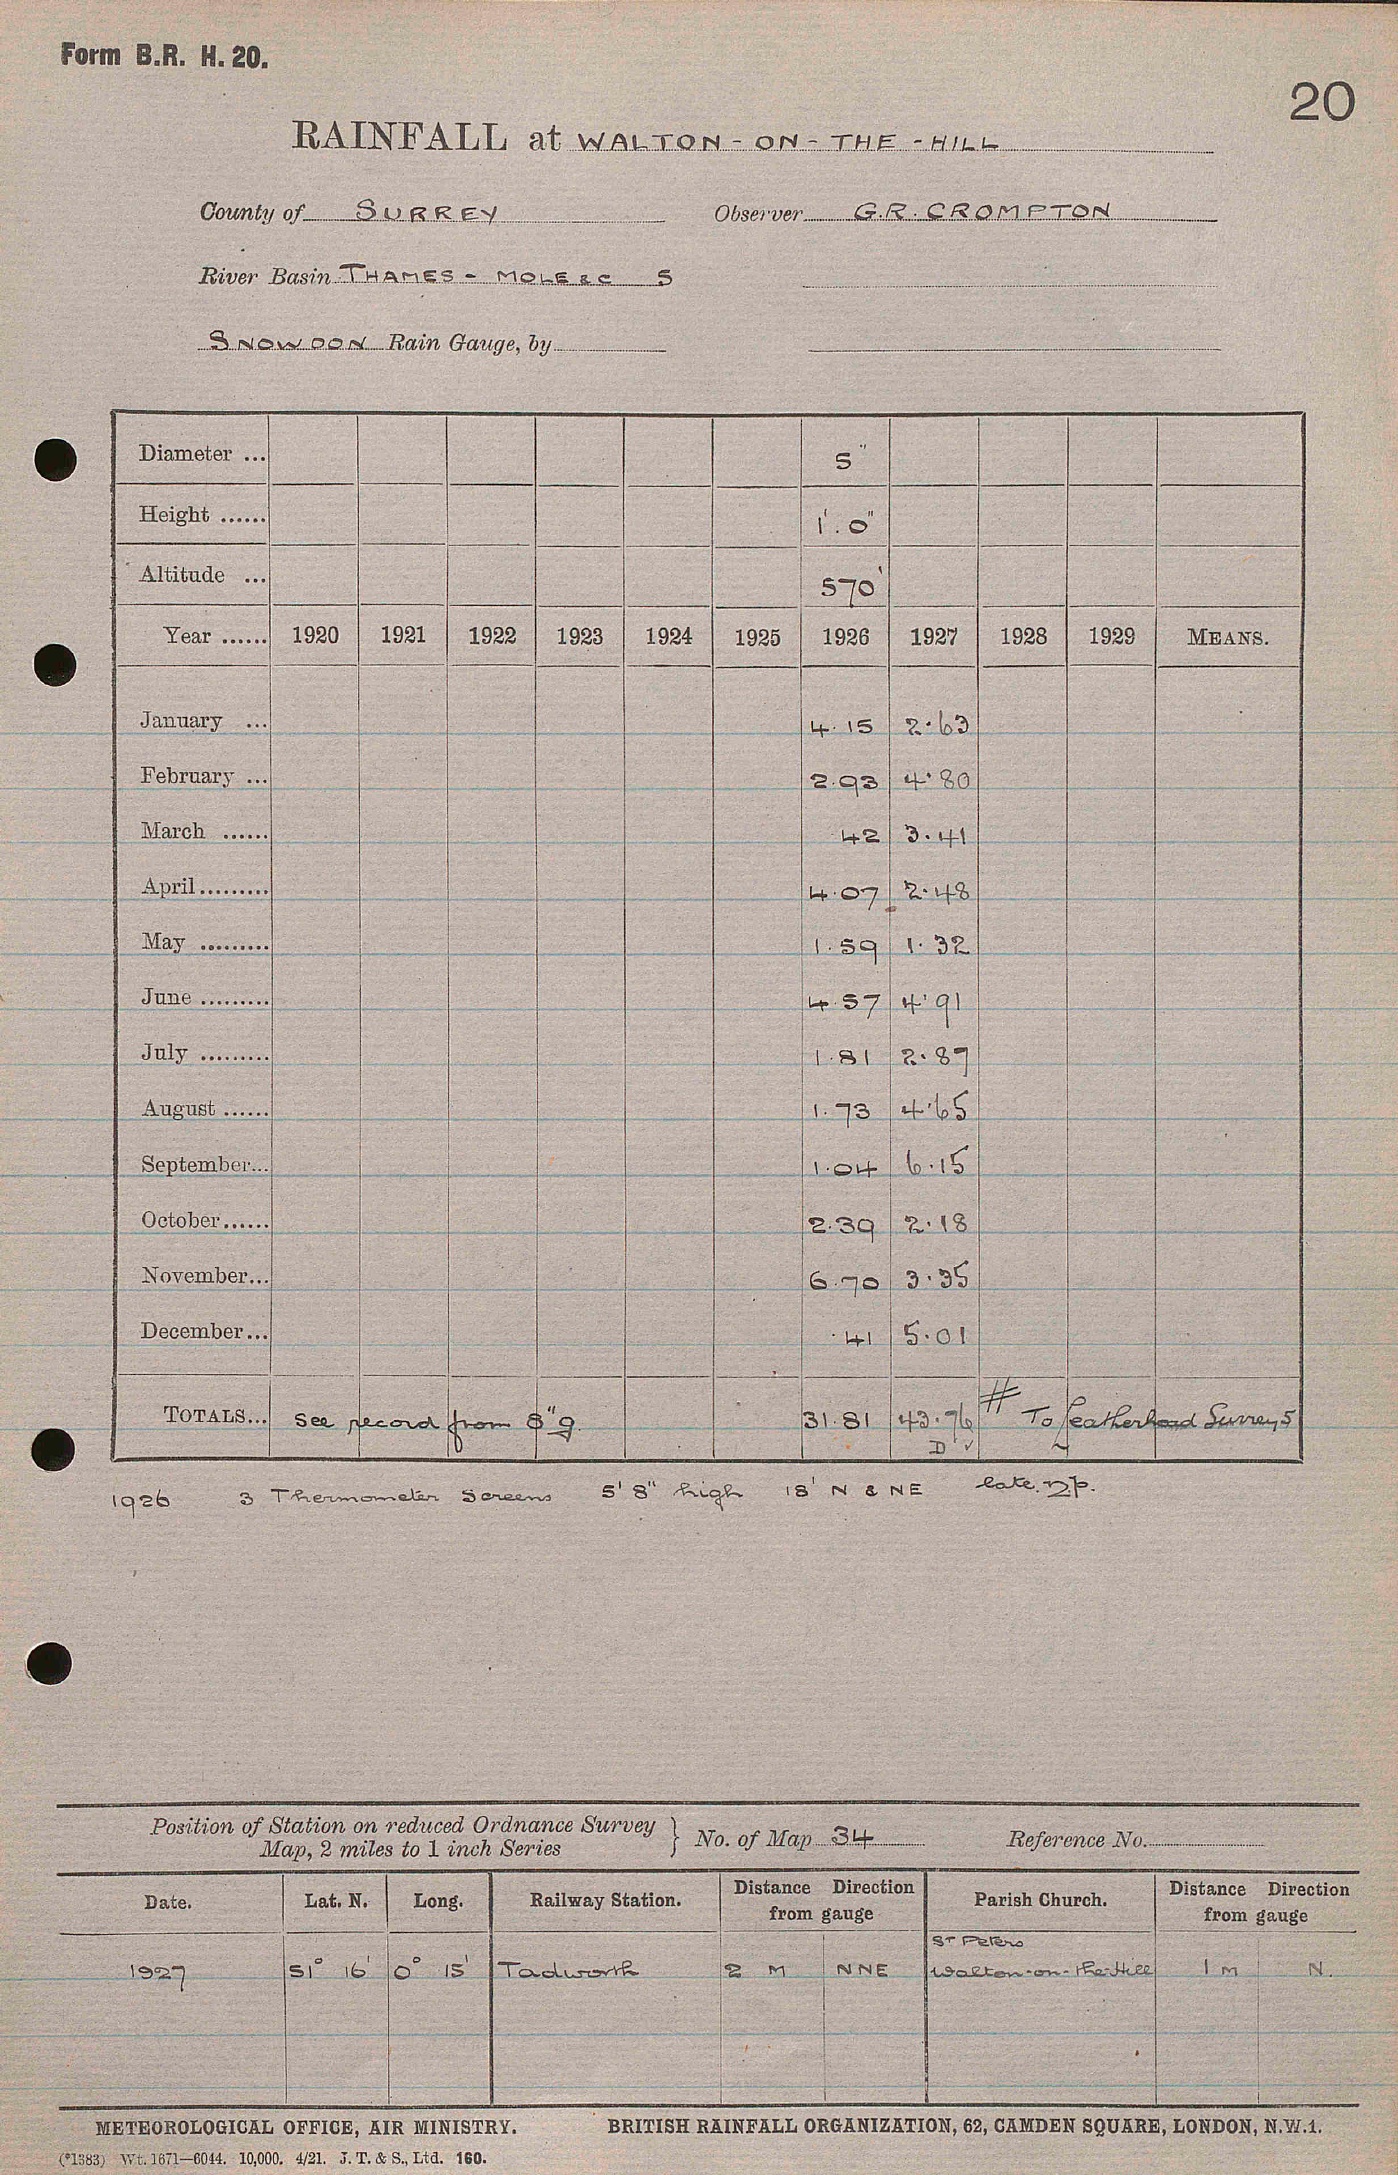 Form B.R. H. 20.
20
RAINFALL at WALTON-ON-THE-HILL
County of SURREY Observer G.R. CROMPTON
River Basin THAMES - MOLE &C 5
SNOWDON Rain Gauge, by
Diameter ... 5"
Height ...... 1'.0"
Altitude ... 570'
Year ...... 1920 1921 1922 1923 1924 1925 1926 1927 1928 1929 MEANS.
January ... 4.15 2.63
February ... 2.93 4.80
March ...... 42 3.41
April......... 4.07 2.48
May ......... 1.59 1.32
June ......... 4.57 4.91
July ......... 1.81 2.87
August ...... 1.73 4.65
September... 1.04 6.15
October...... 2.39 2.18
November... 6.70 3.35
December... .41 5.01
TOTALS... See record from 8"g. 31.81 43.76 # To Leatherhead Surrey 5
D ✓
1926 3 Thermometer Screens 5' 8" high 18' N & NE late np.
Position of Station on reduced Ordnance Survey
Map, 2 miles to 1 inch Series } No. of Map 34 Reference No.
Date. Lat. N. Long. Railway Station. Distance Direction from gauge Parish Church. Distance Direction from gauge
St Peters
1927 51° 16' 0° 15' Tadworth 2 M NNE Walton-on-the-Hill 1 m N.
METEOROLOGICAL OFFICE, AIR MINISTRY. BRITISH RAINFALL ORGANIZATION, 62, CAMDEN SQUARE, LONDON, N.W.1.
(*1383) Wt. 1671—6044. 10,000. 4/21. J. T. & S., Ltd. 160.